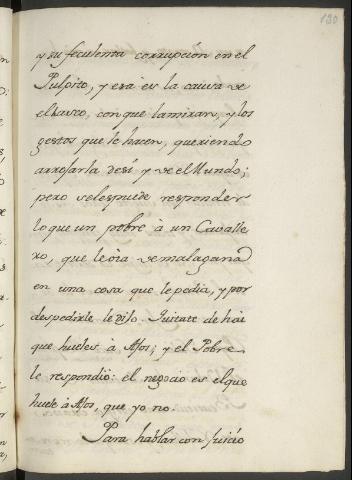 130
y su feculenta corrupcion en el
Pulpito, y esa es la causa de
el asco, con que la miran, y los
gestos que le hacen, queriendo
arrojarla de si y de el Mundo;
pero seles puede responder
lo que un pobre à un Cavalle
ro, que le oìa de mala gana
en una cosa que le pedia, y por
despedirle le dijo. Quitate de hai
que hueles à Ajos; y el Pobre
le respondio: el negocio es el que
huele à Ajos, que yo no.
Para hablar con juicio